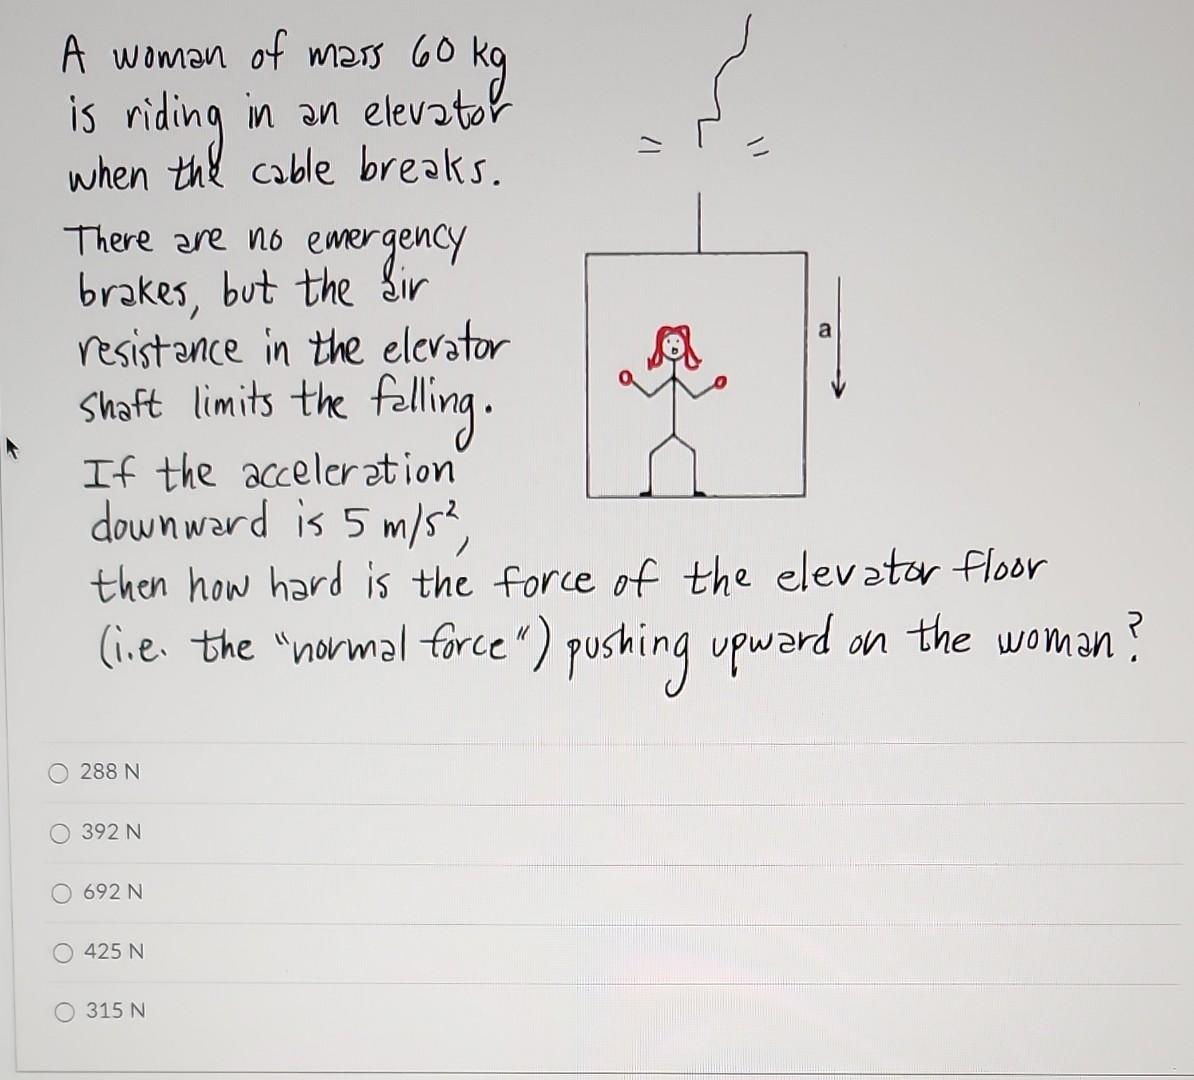 A woman of mass 60 kg
is riding in an elevator
when the cable breaks.
There are no emergency
brakes, but the air
resistance in the elevator
shaft limits the falling.
a
If the acceleration
downward is 5 m/s²,
then how hard is the force of the elevator floor
(i.e. the "normal force") pushing upward on the woman?
288 N
392 N
692 N
425 N
315 N